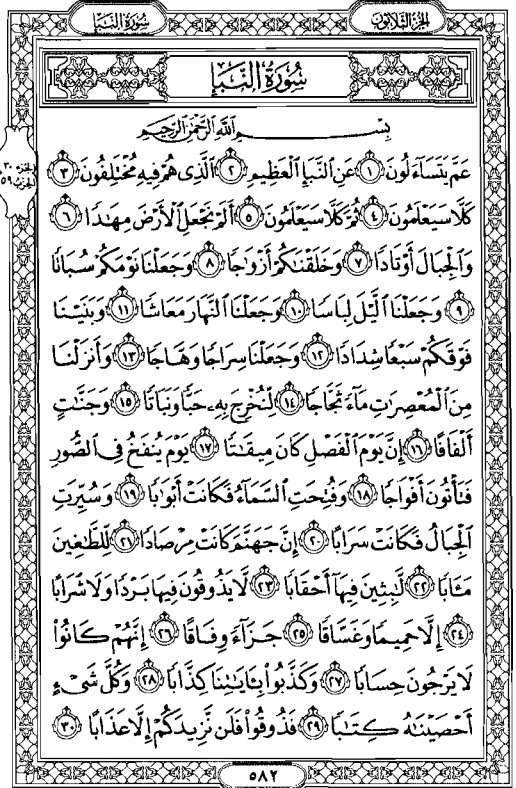 سُورَةُ النَّبَإِ
الجُزْءُ الثَّلَاثُونَ
سُورَةُ النَّبَإِ
بِسْمِ اللَّهِ الرَّحْمَٰنِ الرَّحِيمِ
عَمَّ يَتَسَآءَلُونَ ١ عَنِ ٱلنَّبَإِ ٱلْعَظِيمِ ٢ ٱلَّذِى هُمْ فِيهِ مُخْتَلِفُونَ ٣
كَلَّا سَيَعْلَمُونَ ٤ ثُمَّ كَلَّا سَيَعْلَمُونَ ٥ أَلَمْ نَجْعَلِ ٱلْأَرْضَ مِهَٰدًا ٦
وَٱلْجِبَالَ أَوْتَادًا ٧ وَخَلَقْنَٰكُمْ أَزْوَٰجًا ٨ وَجَعَلْنَا نَوْمَكُمْ سُبَاتًا
٩ وَجَعَلْنَا ٱلَّيْلَ لِبَاسًا ١٠ وَجَعَلْنَا ٱلنَّهَارَ مَعَاشًا ١١ وَبَنَيْنَا
فَوْقَكُمْ سَبْعًا شِدَادًا ١٢ وَجَعَلْنَا سِرَاجًا وَهَّاجًا ١٣ وَأَنزَلْنَا
مِنَ ٱلْمُعْصِرَٰتِ مَآءً ثَجَّاجًا ١٤ لِّنُخْرِجَ بِهِۦ حَبًّا وَنَبَاتًا ١٥ وَجَنَّٰتٍ
أَلْفَافًا ١٦ إِنَّ يَوْمَ ٱلْفَصْلِ كَانَ مِيقَٰتًا ١٧ يَوْمَ يُنفَخُ فِى ٱلصُّورِ
فَتَأْتُونَ أَفْوَاجًا ١٨ وَفُتِحَتِ ٱلسَّمَآءُ فَكَانَتْ أَبْوَٰبًا ١٩ وَسُيِّرَتِ
ٱلْجِبَالُ فَكَانَتْ سَرَابًا ٢٠ إِنَّ جَهَنَّمَ كَانَتْ مِرْصَادًا ٢١ لِّلطَّٰغِينَ
مَـَٔابًا ٢٢ لَّٰبِثِينَ فِيهَآ أَحْقَابًا ٢٣ لَّا يَذُوقُونَ فِيهَا بَرْدًا وَلَا شَرَابًا
٢٤ إِلَّا حَمِيمًا وَغَسَّاقًا ٢٥ جَزَآءً وِفَاقًا ٢٦ إِنَّهُمْ كَانُوا۟
لَا يَرْجُونَ حِسَابًا ٢٧ وَكَذَّبُوا۟ بِـَٔايَٰتِنَا كِذَّابًا ٢٨ وَكُلَّ شَىْءٍ
أَحْصَيْنَٰهُ كِتَٰبًا ٢٩ فَذُوقُوا۟ فَلَن نَّزِيدَكُمْ إِلَّا عَذَابًا ٣٠
الجزء ٣٠
الحزب ٥٩
٥٨٢